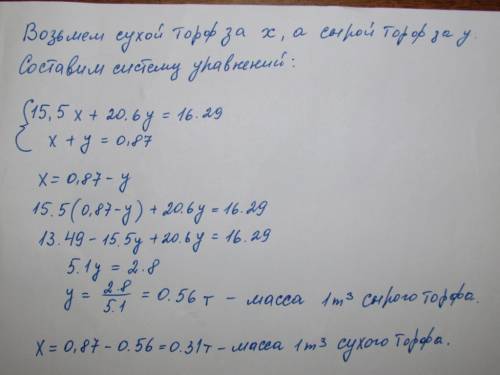 Возьмем сухой торф за x, а сырой торф за y.
Составим систему уравнений:
{15,5x + 20.6y = 16.29
x + y = 0,87
x = 0,87 - y
15.5(0,87-y) + 20.6y = 16.29
13.49 - 15,5y + 20.6y = 16.29
5.1y = 2.8
y = 2.8/5.1 = 0.56т - масса 1m³ сырого торфа.
x = 0,87 - 0.56 = 0.31т - масса 1m³ сухого торфа.